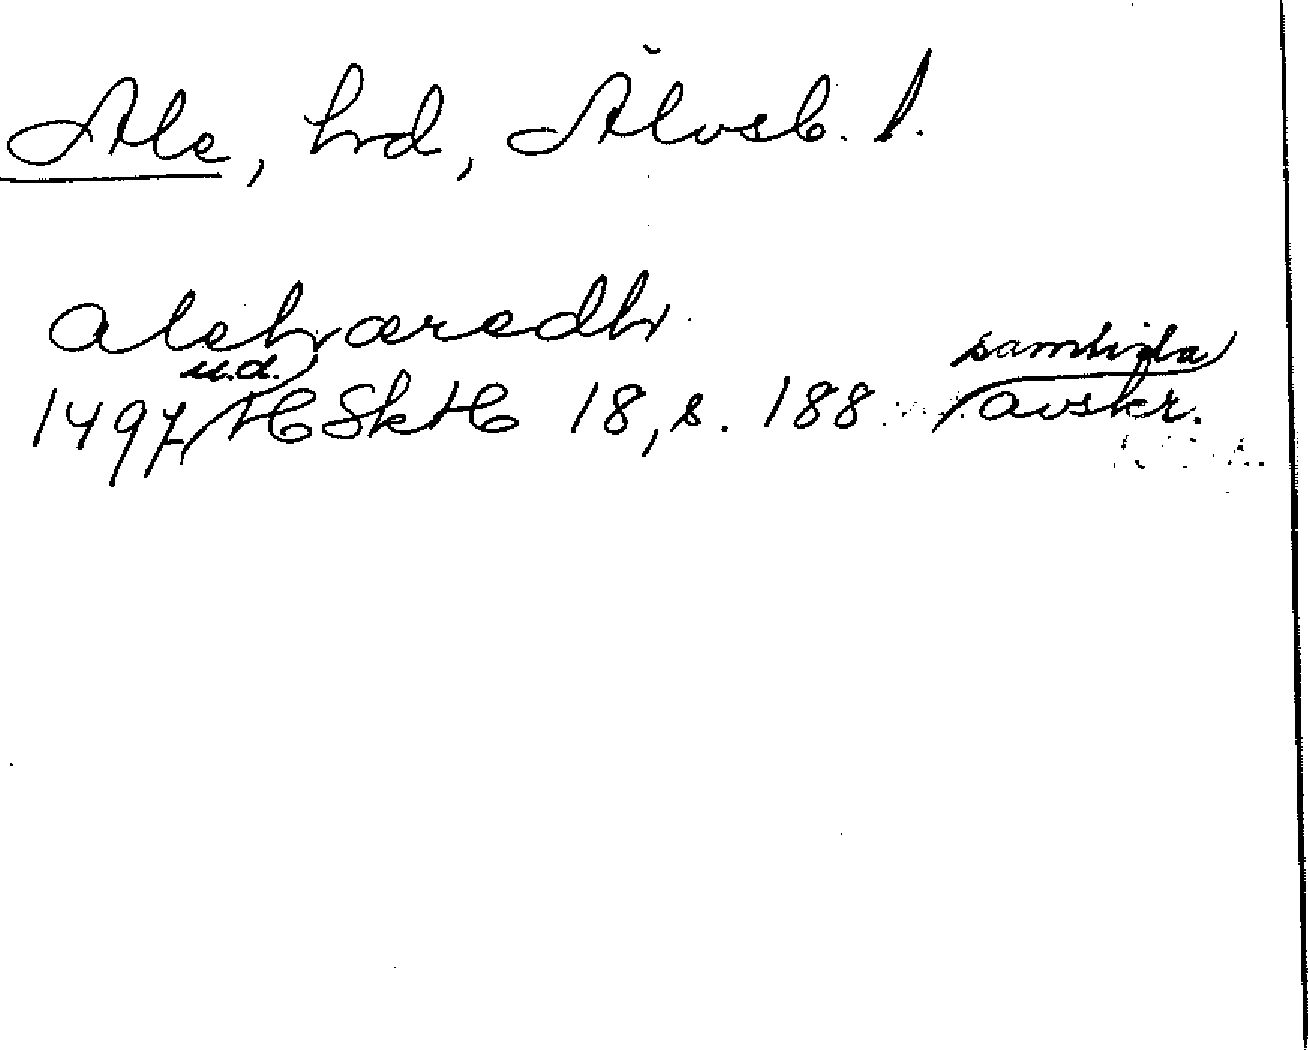 Ale, hd, Älvsb. l.
alehæredh
1497 u.d. HSkH 18, s. 188 samtida avskr.